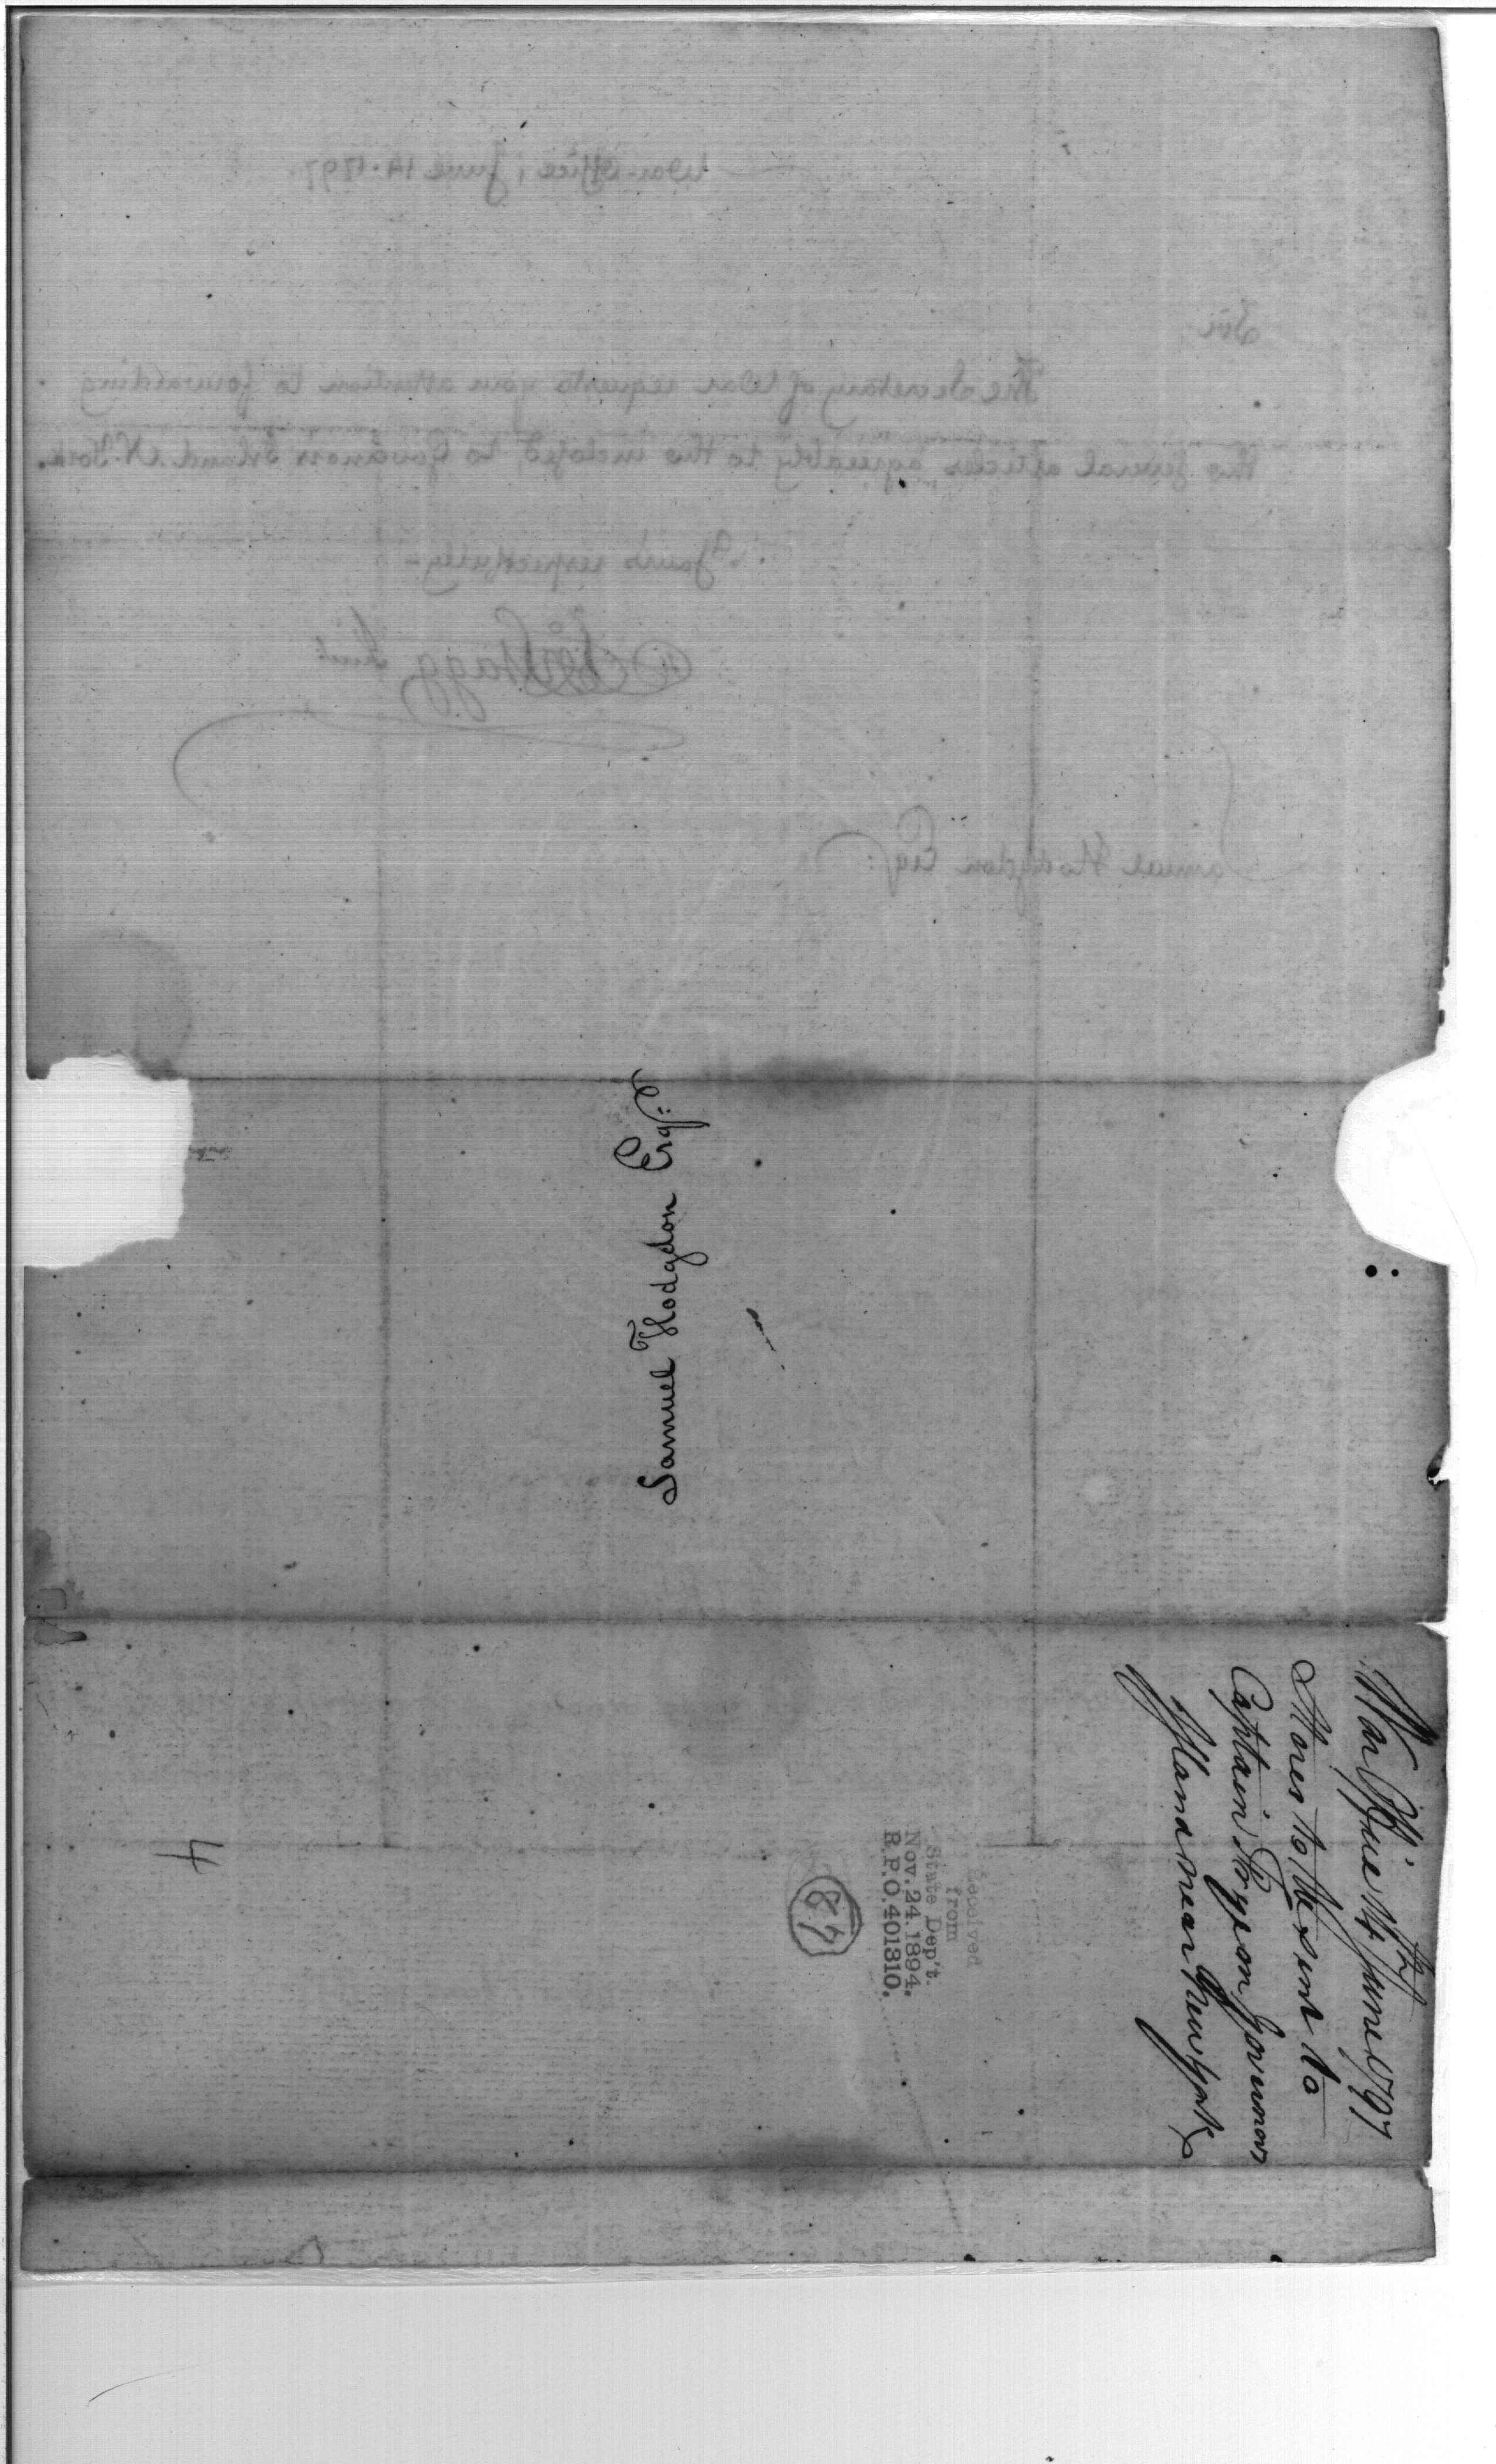 War Office, June 14. 1797
Sir
The Secretary of War requests your attention to forwarding
the several articles, agreeably to the inclosed, to Governors Island. N. York.
Yours respectfully
Stagg
Samuel Hodgdon Esqr.
Samuel Hodgdon Esqr:
War Office 14th June 1797
Stores to be sent to
Captain on Governors
Island near New York
Received
from
State Dep't.
Nov. 24. 1894.
R.P.O. 401310.
87
4